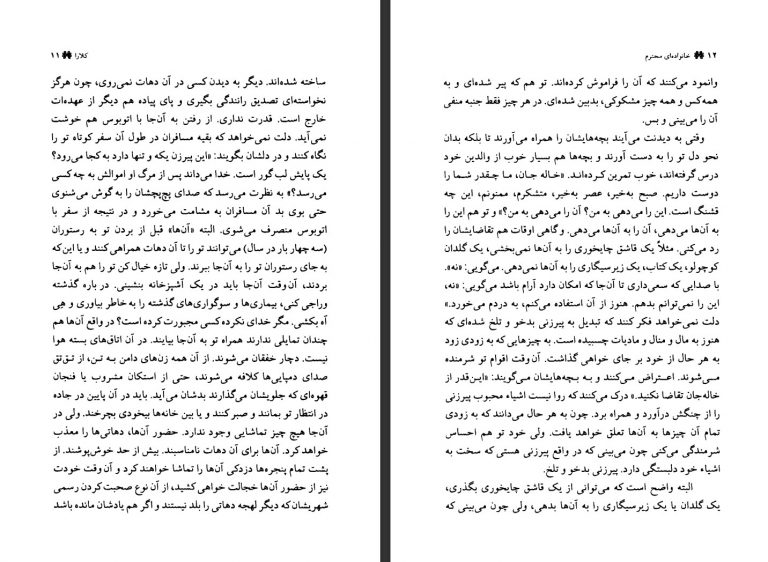 کلارا ۱۱
ساخته شده‌اند. دیگر به دیدن کسی در آن دهات نمی‌روی، چون هرگز
نخواسته‌ای تصدیق رانندگی بگیری و پای پیاده هم دیگر از عهده‌ات
خارج است. قدرت نداری. از رفتن به آن‌جا با اتوبوس هم خوشت
نمی‌آید. دلت نمی‌خواهد که بقیه مسافران در طول آن سفر کوتاه تو را
نگاه کنند و در دلشان بگویند: «این پیرزن یکه و تنها دارد به کجا می‌رود؟
یک پایش لب گور است. خدا می‌داند پس از مرگ او اموالش به چه کسی
می‌رسد؟» به نظرت می‌رسد که صدای پچ‌پچشان را به گوش می‌شنوی
حتی بوی بد آن مسافران به مشامت می‌خورد و در نتیجه از سفر با
اتوبوس منصرف می‌شوی. البته «آن‌ها» قبل از بردن تو به رستوران
(سه چهار بار در سال) می‌توانند تو را تا آن دهات همراهی کنند و یا این‌که
به جای رستوران تو را به آن‌جا ببرند. ولی تازه خیال کن تو را هم به آن‌جا
بردند، آن وقت آن‌جا باید در یک آشپزخانه بنشینی. در باره گذشته
وراجی کنی، بیماری‌ها و سوگواری‌های گذشته را به خاطر بیاوری و هِی
آه بکشی. مگر خدای نکرده کسی مجبورت کرده است؟ در واقع آن‌ها هم
چندان تمایلی ندارند همراه تو به آن‌جا بیایند. در آن اتاق‌های بسته هوا
نیست. دچار خفقان می‌شوند. از آن همه زن‌های دامن به تن، از تق‌تق
صدای دمپایی‌ها کلافه می‌شوند، حتی از استکان مشروب یا فنجان
قهوه‌ای که جلویشان می‌گذارند بدشان می‌آید. باید در آن پایین در جاده
در انتظار تو بمانند و صبر کنند و یا بین خانه‌ها بیخودی بچرخند. ولی در
آن‌جا هیچ چیز تماشایی وجود ندارد. حضور آن‌ها، دهاتی‌ها را معذب
خواهد کرد. آن‌ها برای آن دهات نامناسبند. بیش از حد خوش‌پوشند. از
پشت تمام پنجره‌ها دزدکی آن‌ها را تماشا خواهند کرد و آن وقت خودت
نیز از حضور آن‌ها خجالت خواهی کشید، از آن نوع صحبت کردن رسمی
شهریشان که دیگر لهجه دهاتی را بلد نیستند و اگر هم یادشان مانده باشد
۱۲ خانواده‌ای محترم
وانمود می‌کنند که آن را فراموش کرده‌اند. تو هم که پیر شده‌ای و به
همه‌کس و همه چیز مشکوکی، بدبین شده‌ای. در هر چیز فقط جنبه منفی
آن را می‌بینی و بس.
وقتی به دیدنت می‌آیند بچه‌هایشان را همراه می‌آورند تا بلکه بدان
نحو دل تو را به دست آورند و بچه‌ها هم بسیار خوب از والدین خود
درس گرفته‌اند، خوب تمرین کرده‌اند. «خاله جان، ما چقدر شما را
دوست داریم. صبح به‌خیر، عصر به‌خیر، متشکرم، ممنونم، این چه
قشنگ است. این را می‌دهی به من؟ آن را می‌دهی به من؟» و تو هم این را
به آن‌ها می‌دهی، آن را به آن‌ها می‌دهی. و گاهی اوقات هم تقاضایشان را
رد می‌کنی. مثلاً یک قاشق چایخوری را به آن‌ها نمی‌بخشی، یک گلدان
کوچولو، یک کتاب، یک زیرسیگاری را به آن‌ها نمی‌دهی. می‌گویی: «نه».
با صدایی که سعی‌داری تا آن‌جا که امکان دارد آرام باشد می‌گویی: «نه،
این را نمی‌توانم بدهم. هنوز از آن استفاده می‌کنم، به دردم می‌خورد.»
دلت نمی‌خواهد فکر کنند که تبدیل به پیرزنی بدخو و تلخ شده‌ای که
هنوز به مال و منال و مادیات چسبیده است. به چیزهایی که به زودی زود
به هر حال از خود بر جای خواهی گذاشت. آن وقت اقوام تو شرمنده
می‌شوند. اعتراض می‌کنند و به بچه‌هایشان می‌گویند: «این‌قدر از
خاله‌جان تقاضا نکنید.» درک می‌کنند که روا نیست اشیاء محبوب پیرزنی
را از چنگش درآورد و همراه برد. چون به هر حال می‌دانند که به زودی
تمام آن چیزها به آن‌ها تعلق خواهد یافت. ولی خود تو هم احساس
شرمندگی می‌کنی چون می‌بینی که در واقع پیرزنی هستی که سخت به
اشیاء خود دلبستگی دارد. پیرزنی بدخو و تلخ.
البته واضح است که می‌توانی از یک قاشق چایخوری بگذری،
یک گلدان یا یک زیرسیگاری را به آن‌ها بدهی، ولی چون می‌بینی که